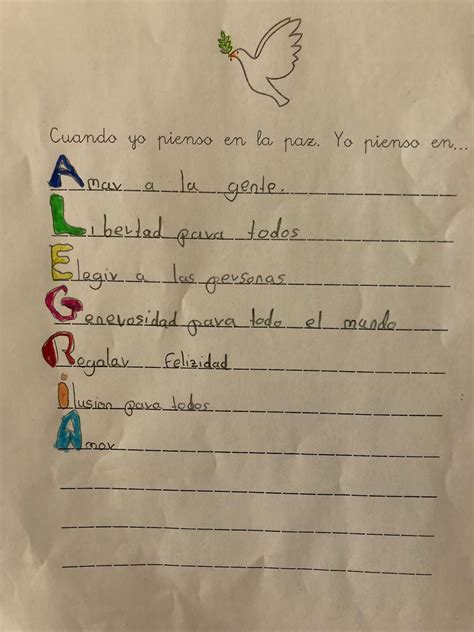 Cuando yo pienso en la paz. Yo pienso en...
Amar a la gente.
Libertad para todos
Elegir a las personas
Generosidad para todo el mundo
Regalar Felizidad
ilusion para todos
Amor